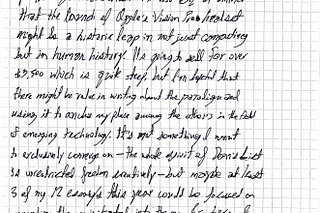 that the launch of Apple's Vision Pro headset
might be a historic leap in not just computing
but in human history. It's going to sell for over
$3,500 which is quite steep, but I'm hopeful that
there might be value in writing about the paradigm and
using it to anchor my place among the others in the field
of emerging technology. It's not something I want
to exclusively converge on – the whole spirit of
is unrestricted freedom creatively – but maybe at least
3 of my 12 essays this year could be focused on